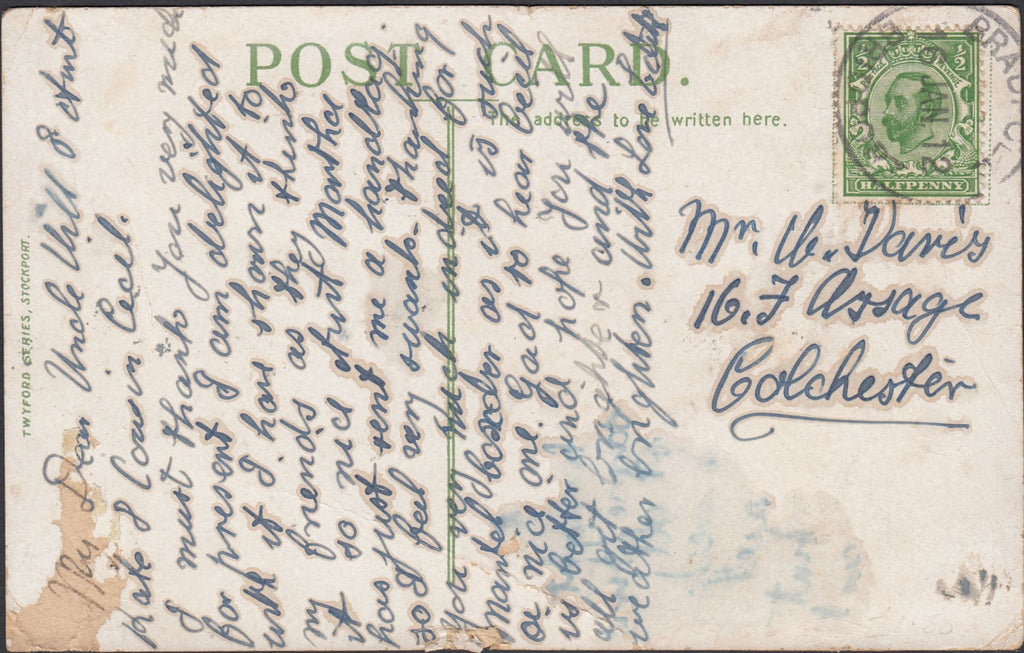 POST CARD.
The address to be written here.
TWYFORD SERIES, STOCKPORT.
HALFPENNY
My Dear Uncle Will & Aunt
Kate & Cousin Cecil.
I must thank you very much
for present I am delighted
with it I have shown it to
my friends as they think
it so nice Aunt Martha
has just sent me a handbag
so I feel very swank. thanking
you very much indeed for
mantel boarder as it is such
a nice one. Gad to hear Cecil
is better and hope you will
all get brighter and the
weather brighten. With Love
Mr. W. Davis
16. F Assage
Colchester